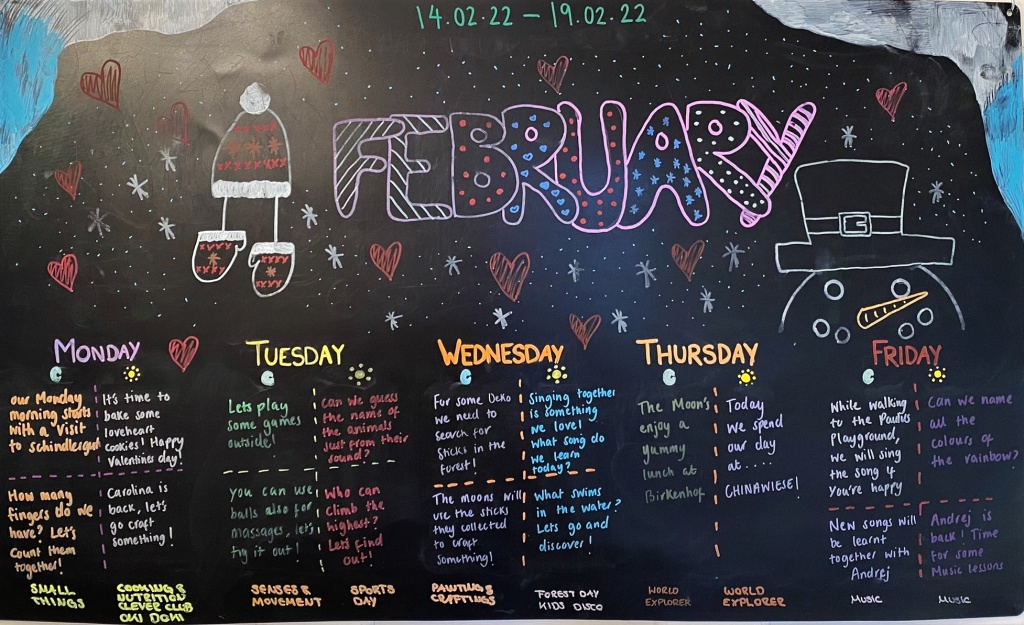 14.02.22 - 19.02.22
FEBRUARY
MONDAY
our Monday
morning starts
with a visit
to schindlergut
It's time to
bake some
loveheart
cookies! Happy
Valentines day!
How many
fingers do we
have? Let's
count them
together!
Carolina is
back, let's
go craft
something!
SMALL
THINGS
COOKING &
NUTRITION
CLEVER CLUB
TUESDAY
Lets play
some games
outside!
Can we guess
the name of
the animals
just from their
sound?
you can use
balls also for
massages, let's
try it out!
Who can
climb the
highest?
Lets find
out!
SENSES &
MOVEMENT
SPORTS
DAY
WEDNESDAY
For some Deko
we need to
search for
sticks in the
forest!
Singing together
is something
we love!
what song do
we learn
today?
The moons will
use the sticks
they collected
to craft
something!
What swims
in the water?
Lets go and
discover!
PAINTING &
CRAFTINGS
FOREST DAY
KIDS DISCO
THURSDAY
The Moon's
enjoy a
yummy
lunch at
Birkenhof
Today
we spend
our day
at.....
CHINAWIESE!
WORLD
EXPLORER
WORLD
EXPLORER
FRIDAY
While walking
to the
Playground,
we will sing
the song 4
You're happy
Can we name
all the
colours of
the rainbow?
New songs will
be learnt
together with
Andrej
Andrej is
back! Time
for some
Music lessons
MUSIC
MUSIC